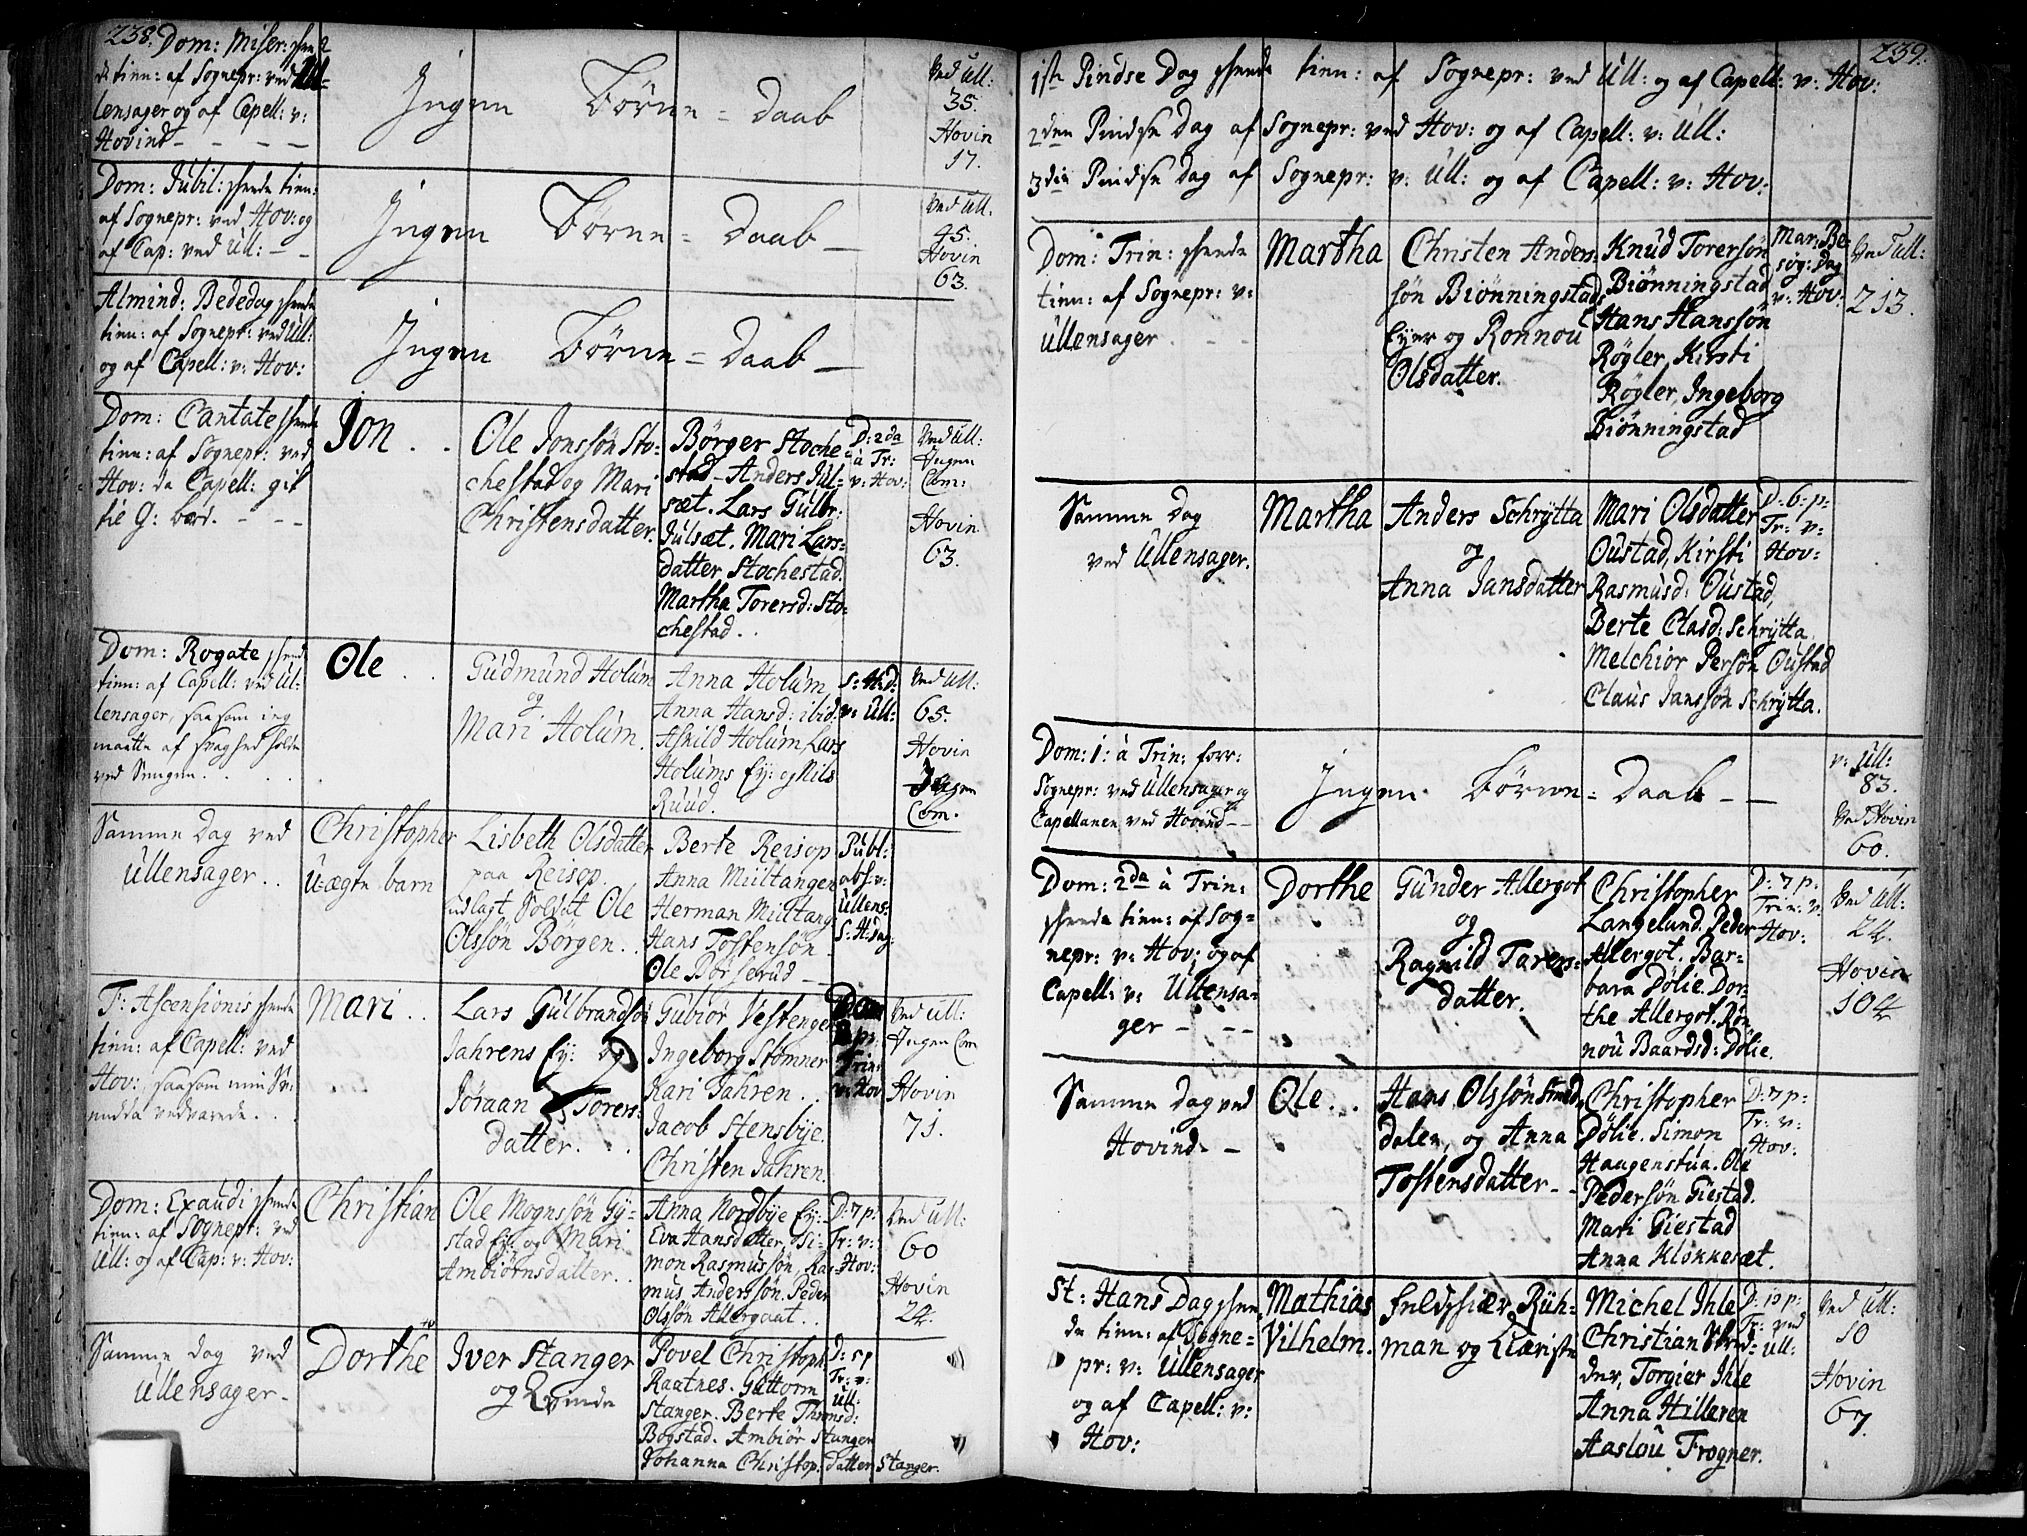 238. Dom: Miser: skee
de tien: af Sognepr: ved Ul-
lensager og af Capell: v:
Hovind - - - -
Ingen Börne = Daab
Ved Ull:
35.
Hovin
17.
Dom: Jubil: skeede tien:
af Sognepr: ved Hov: og
af Cap: ved Ull: - -
Ingen Börne = Daab -
Ved Ull.
45.
Hovin
63.
Almind: Bededag skeede
tien: af Sognepr: ved Ull:
og af Capell: v: Hov:
Ingen Börne = Daab -
Dom: Cantate skeede
tien: af Sognepr: ved
Hov: da Capell: gik
til G: bord. - - -
Jon . .
Ole Jonssön Sto-
chestad og Mari
Christensdatter.
Börger Stoche
stad - Anders Jul-
sæt. Lars Gulbr:
Julsæt. Mari Lars-
datter Stochestad.
Martha Torersd: Sto-
chestad . .
D: 2da
à Tr:
v: Hov:
Ved Ull:
Ingen
Com:
Hovin
63.
Dom: Rogate skeede
tien: af Capell: ved Ul-
lensager, saasom ieg
maatte af svaghed holde
ved Sengen. . . .
Ole . .
Gudmund Holum
og
Mari Holum.
Anna Holum
Anna Hansd: ibid.
Asnild Holum Lars
Holums Ey: og Nils
Ruud.
S: H: D:
v: Ull:
Ved Ull:
65.
Hovin
Ingen
Com.
Samme Dag ved
Ullensager . .
Christopher
U-ægte barn
Lisbeth Olsdatter
paa Reisop.
udlagt Soldat Ole
Olssön Börgen . .
Berte Reisop
Anna Miiltangen
Herman Miiltang
Hans Tostensön.
Ole Börserud -
Publ:
abs: v:
Ullens:
S: H: Dag:
F: Ascensionis skeede
tien: af Capell: ved
Hov: saasom min
vedvarede. .
Mari . .
Lars Gulbrandsön
Jahrens Ey: og
Jöraan Torers-
datter. . .
Gubiör Vestenger
Ingeborg Stomner
Kari Jahren . .
Jacob Stensbye.
Christen Jahren.
Dom
p:
Trin:
v: Hov
Ved Ull:
Ingen Com
Hovin
71.
Dom: Exaudi skeede
tien: af Sognepr: ved
Ull: og af Cap: v: Hov:
Christian
Ole Mognssön Gy-
stad Ey: og Mari
Ambiörnsdatter. .
Anna Nordbye Ey:
Eva Hansdatter, Si-
mon Rasmussön, Ras-
mus Anderssön. Peder
Olssön Allergaat . .
D: 7 p:
Tr: v:
Hov:
Ved Ull:
60
Hovin
24.
Samme Dag ved
Ullensager -
Dorthe
Iver Stanger
og Qvinde
Povel Christoph
Raatnes. Guttorm
Stanger. Berte Thomsd:
Bogstad. Ambiör Stanger
Johanna Christop: datter Stanger.
D: 5 p
Tr: v:
Ull:
239.
1ste Pindse Dag skeede tien: af Sognepr: ved Ull: og af Capell: v: Hov:
2den Pindse Dag af Sognepr: ved Hov: og af Capell: v: Ull:
3die Pindse Dag af Sognepr: v: Ull: og af Capell: v: Hov:
Dom: Trin: skeede
tien: af Sognepr: v:
Ullensager . - -
Martha
Christen Anders-
sön Biönningstads
Eyer og Ronnou
Olsdatter.
Knud Torersön
Biönningstad
Hans Hanssön
Rögler, Kirsti
Rögler, Ingeborg
Biönningstad
Mar: Be-
søg: Dag
v: Hov:
Ved Ull:
213.
Samme Dag
ved Ullensager.
Martha
Anders Schrÿtta
og
Anna Jansdatter
Mari Olsdatter
Oustad, Kirsti
Rasmusd: Oustad,
Berte Clasd: Schrÿtta
Melchior Persön Oustad
Claus Janssön Schrÿtta.
D: 6: p:
Tr: v:
Hov:
Dom: 1: à Trin: forr:
Sognepr: ved Ullensager og
Capellanen ved Hovind - -
Ingen Börne = Daab - -
v: Ull:
83.
Ved Hovin
60.
Dom: 2da à Trin:
skeede tien: af Sog-
nepr: v: Hov: og af
Capell: v: Ullensa-
ger - - -
Dorthe
Gunder Allergot
og
Ragnild Torers-
datter.
Christopher
Langelund. Peder
Allergot. Bar-
bara Dölie. Dor-
the Allergot. Rön
nou Baardsd: Dölie.
D: 7 p:
Trin: v:
Hov:
Ved Ull:
24.
Hovin
104
Samme Dag ved
Hovind. -
Ole . .
Hans Olssön
dalen, og Anna
Tostensdatter - -
Christopher
Dölie. Simon
Haugenstua. Ole
Pedersön Giestad.
Mari Giestad
Anna Klökkesæt.
D: 7 p:
Tr: v:
Hov:
St: Hans Dag skee-
de tien: af Sogne-
pr: v: Ullensager
og af Capell: v:
Hov:
Mathias
Vilhelm.
Feldskiær Rüh-
man og Kiæriste
Michel Ihle
Christian
der, Torgier Ihle
Anna Hilleren
Aaslou Frogner.
D: 10 p:
Tr: ved
Ull:
Ved Ull:
10
Hovin
67.